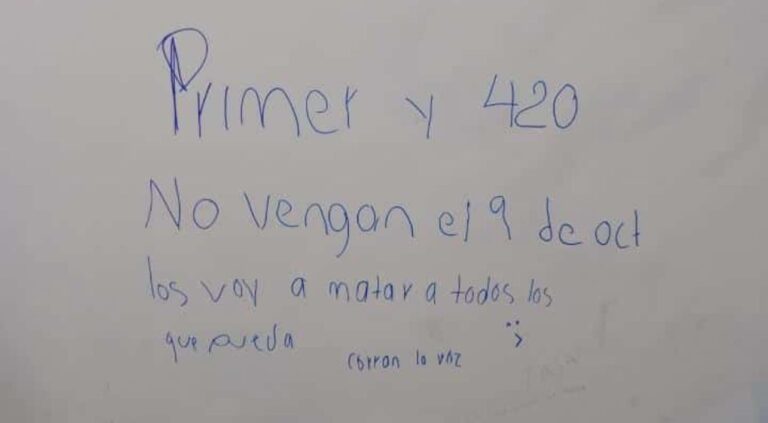 Primer y 420
No vengan el 9 de oct
los voy a matar a todos los
que pueda
corran la voz